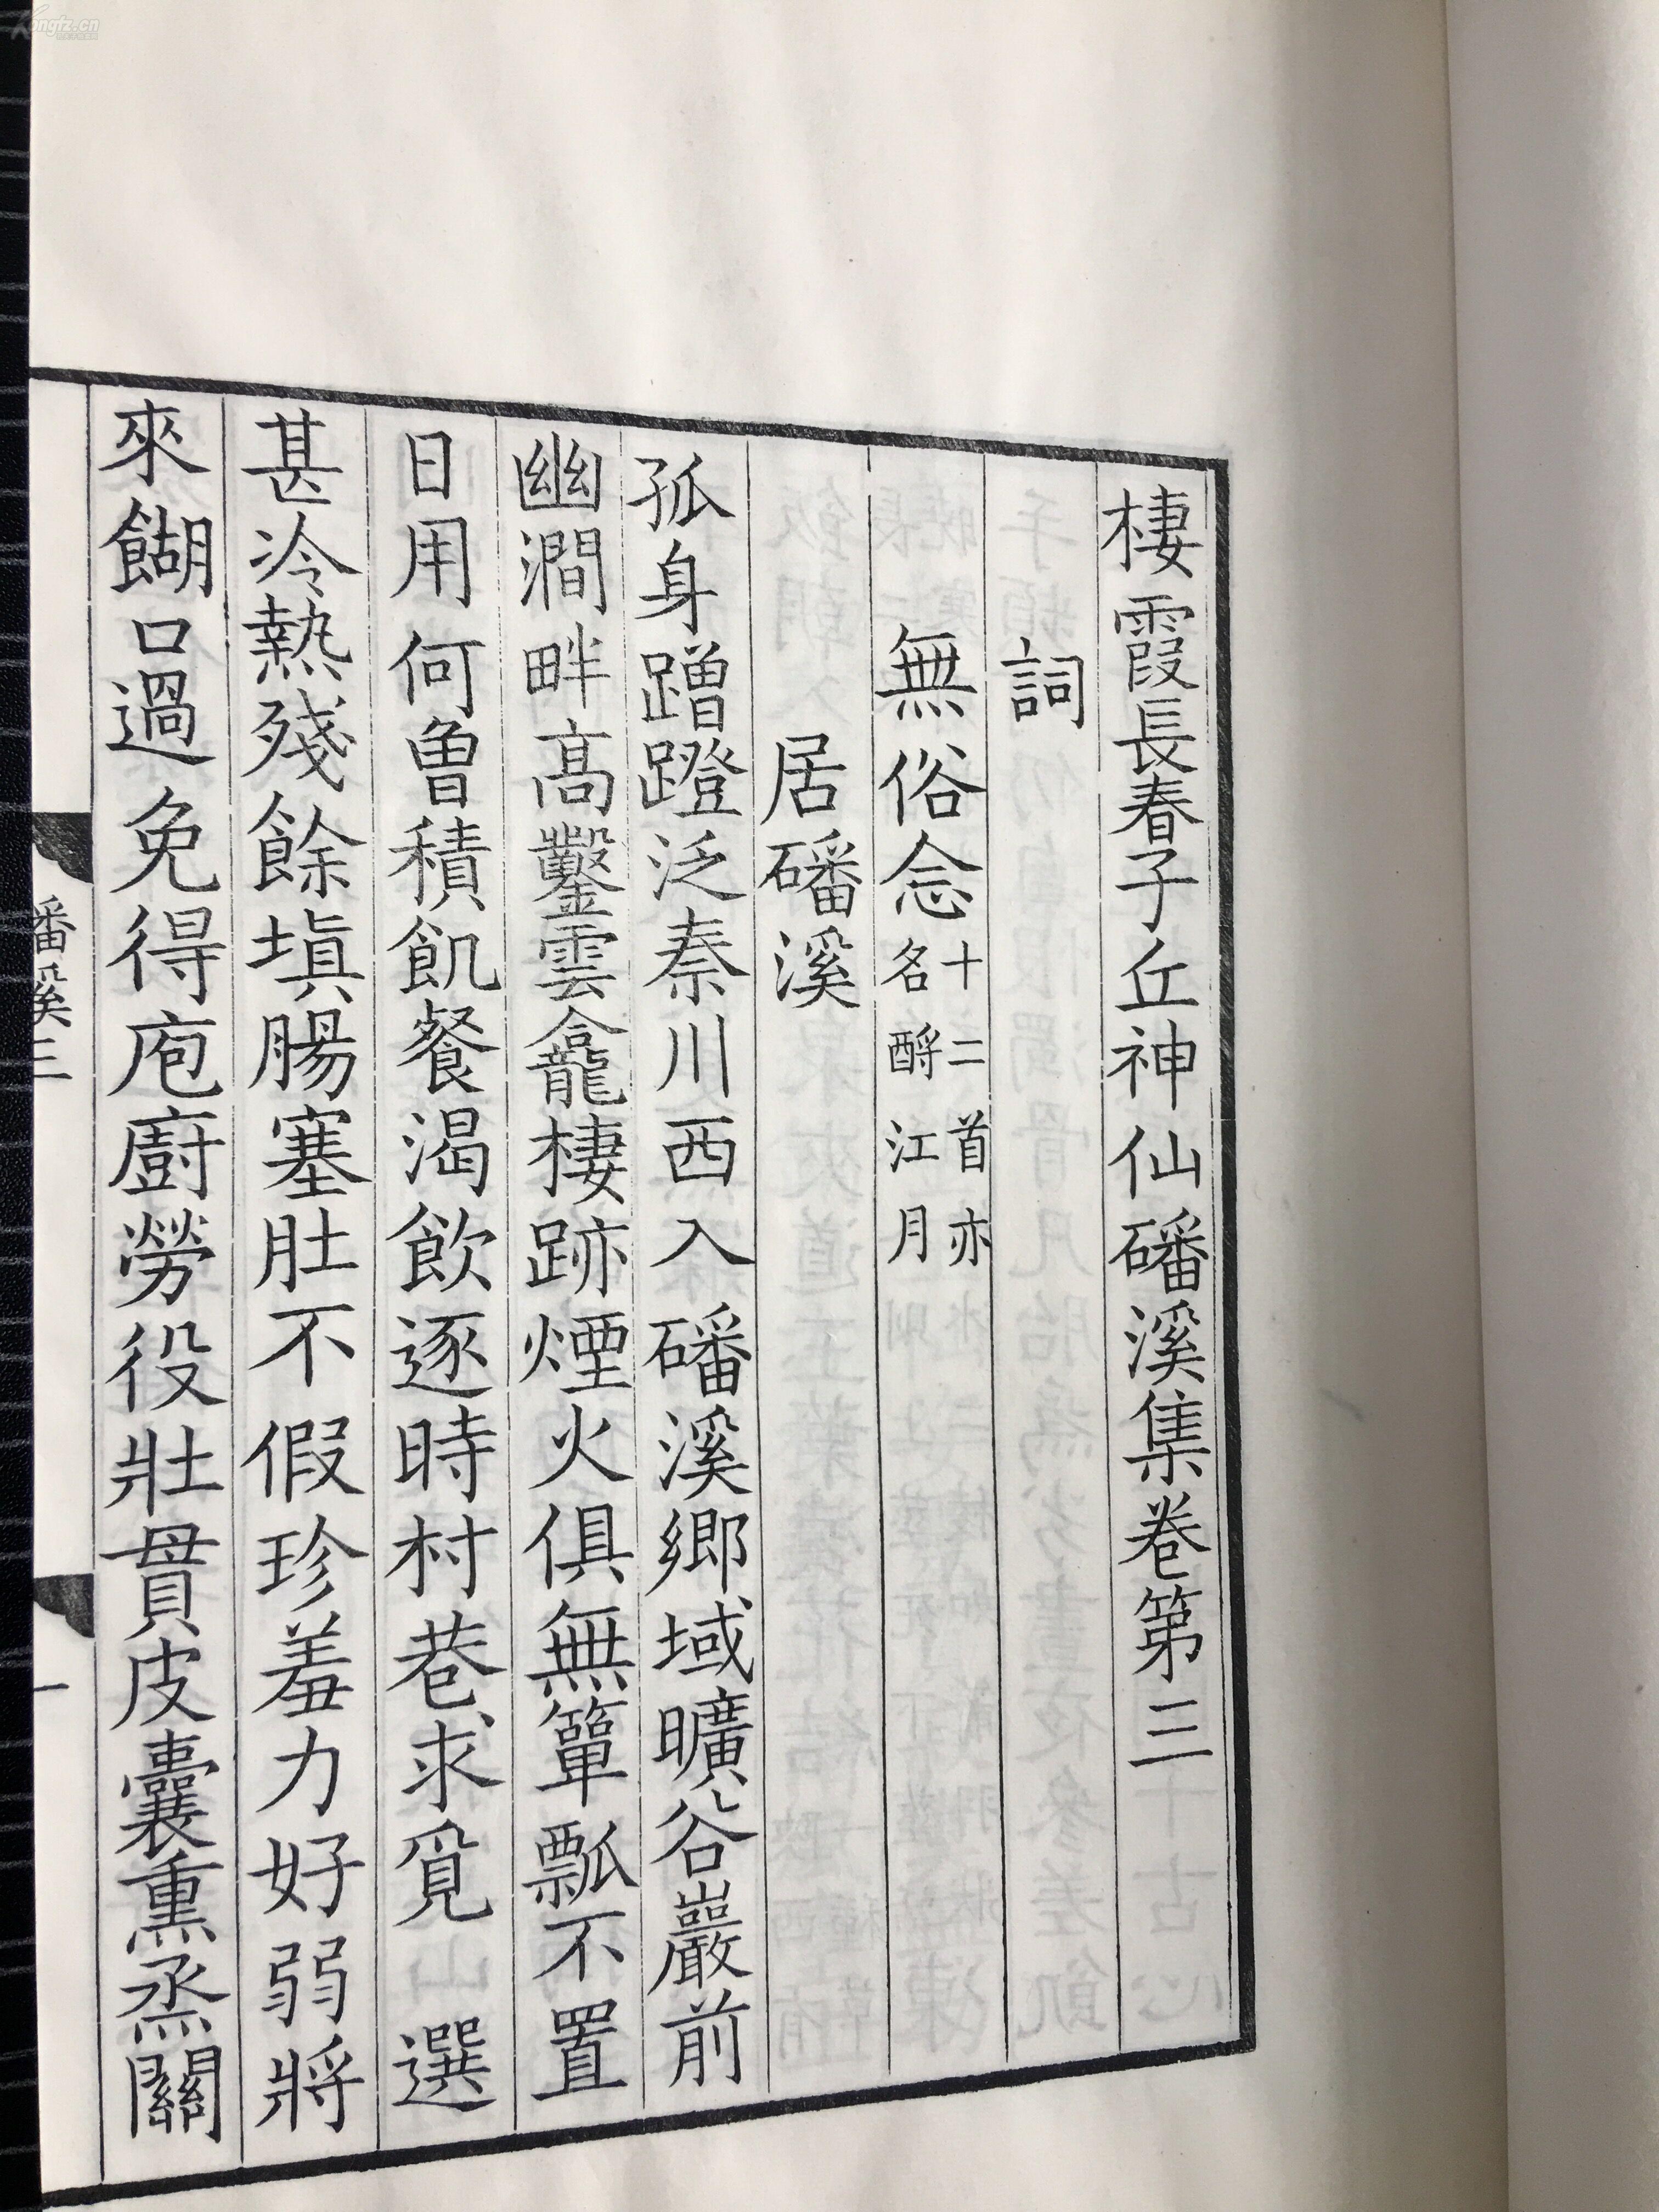 棲霞長春子丘神仙磻溪集卷第三
詞
無俗念十二首亦名酹江月
居磻溪
孤身蹭蹬泛秦川西入磻溪鄉域曠谷巖前
幽澗畔高鑿雲龕棲跡煙火俱無簞瓢不置
日用何曽積飢餐渴飲逐時村巷求覓 選
甚冷熱殘餘塡腸塞肚不假珍羞力好弱將
來餬口過免得庖廚勞役壯貫皮囊熏烝關
磻溪三
一
Kongfz.cn